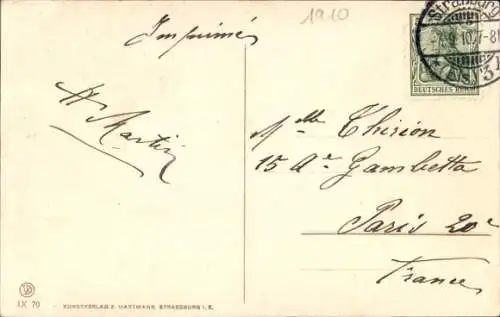 1910
Imprimé
H. Martin
Strassburg
10. 7-8
(Els.) 3
DEUTSCHES REICH
Mlle Thirion
15 Ae Gambetta
Paris 20e
France
IX 70
KUNSTVERLAG E. HARTMANN, STRASSBURG I. E.